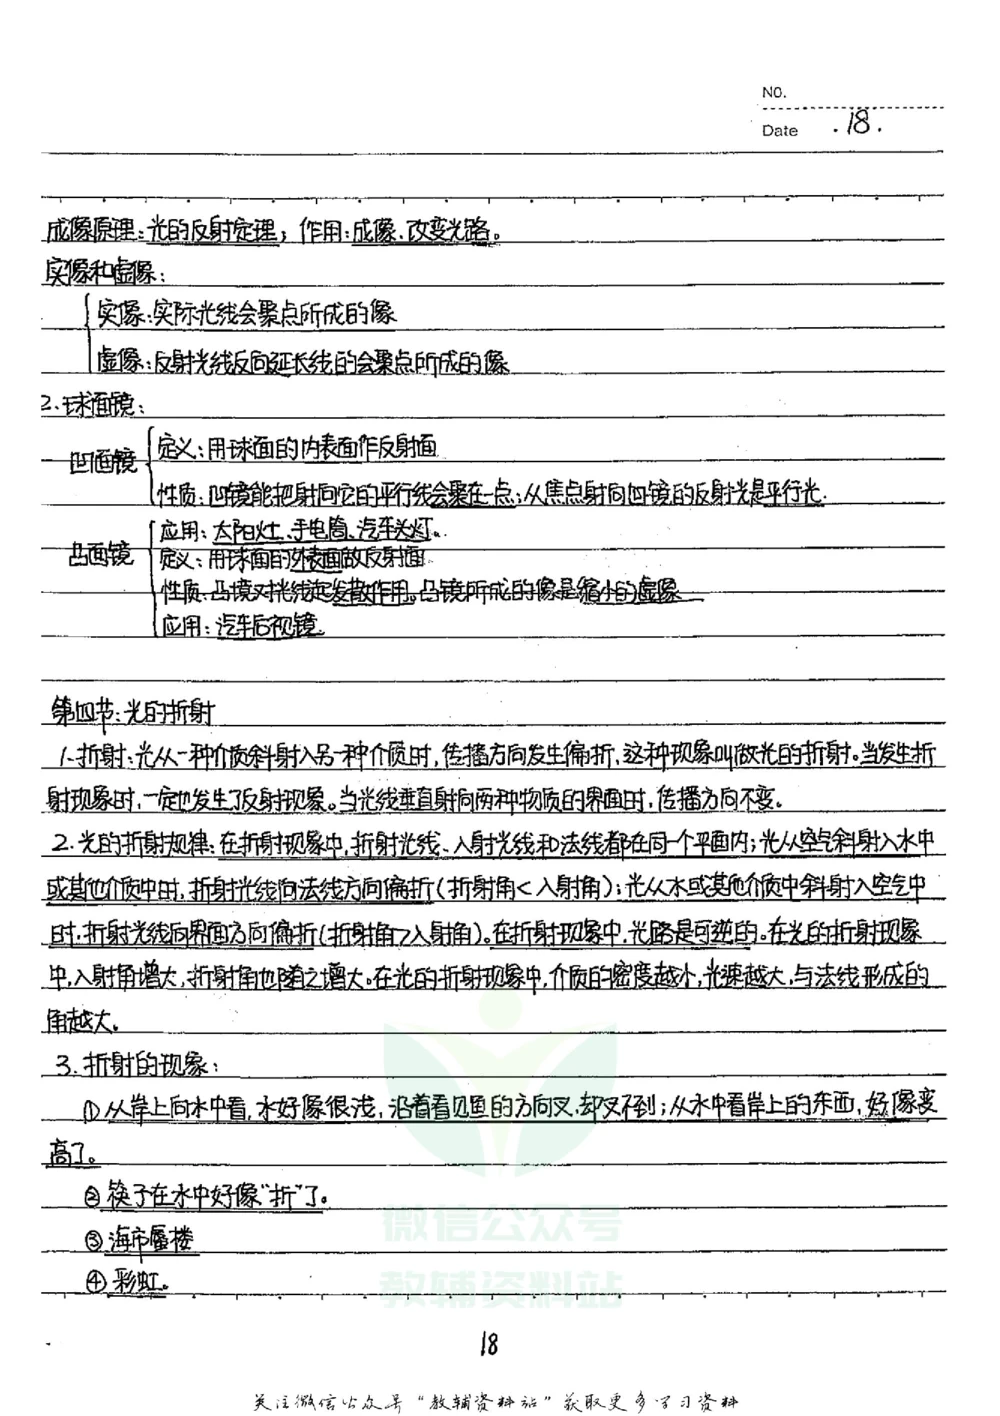 NO.
Date .18.
成像原理:光的反射定理;作用:成像、改变光路。
实像和虚像:
实像:实际光线会聚点所成的像
虚像:反射光线反向延长线的会聚点所成的像
2.球面镜:
凹面镜
定义:用球面的内表面作反射面
性质:凹镜能把射向它的平行线会聚在一点;从焦点射向凹镜的反射光是平行光.
应用:太阳灶、手电筒、汽车头灯。
凸面镜
定义:用球面的外表面做反射面
性质:凸镜对光线起发散作用。凸镜所成的像是缩小的虚像
应用:汽车后视镜.
第四节:光的折射
1.折射:光从一种介质斜射入另一种介质时,传播方向发生偏折,这种现象叫做光的折射。当发生折
射现象时,一定也发生了反射现象。当光线垂直射向两种物质的界面时,传播方向不变。
2.光的折射规律:在折射现象中,折射光线、入射光线和法线都在同一个平面内;光从空气斜射入水中
或其他介质中时,折射光线向法线方向偏折(折射角<入射角);光从水或其他介质中斜射入空气中
时,折射光线向界面方向偏折(折射角>入射角)。在折射现象中,光路是可逆的。在光的折射现象
中,入射角增大,折射角也随之增大。在光的折射现象中,介质的密度越小,光速越大,与法线形成的
角越大。
3.折射的现象:
①从岸上向水中看,水好像很浅,沿着看见鱼的方向叉,却叉不到;从水中看岸上的东西,好像变
高了。
②筷子在水中好像“折”了。
③海市蜃楼
④彩虹。
微信公众号
教辅资料站
18
关注微信公众号“教辅资料站”获取更多学习资料